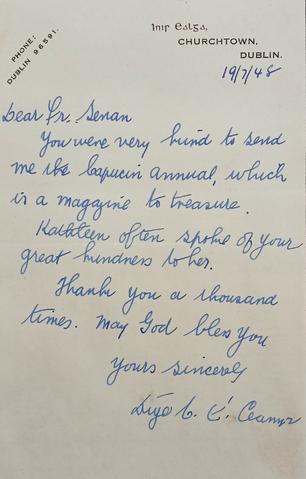 PHONE:
DUBLIN 96591.
Inir Ealga,
CHURCHTOWN,
DUBLIN.
19/7/48
Dear Fr. Senan
You were very kind to send
me the Capucin annual, which
is a magazine to treasure.
Kathleen often spoke of your
great kindness to her.
Thank you a thousand
times. May God bless you
Yours sincerely